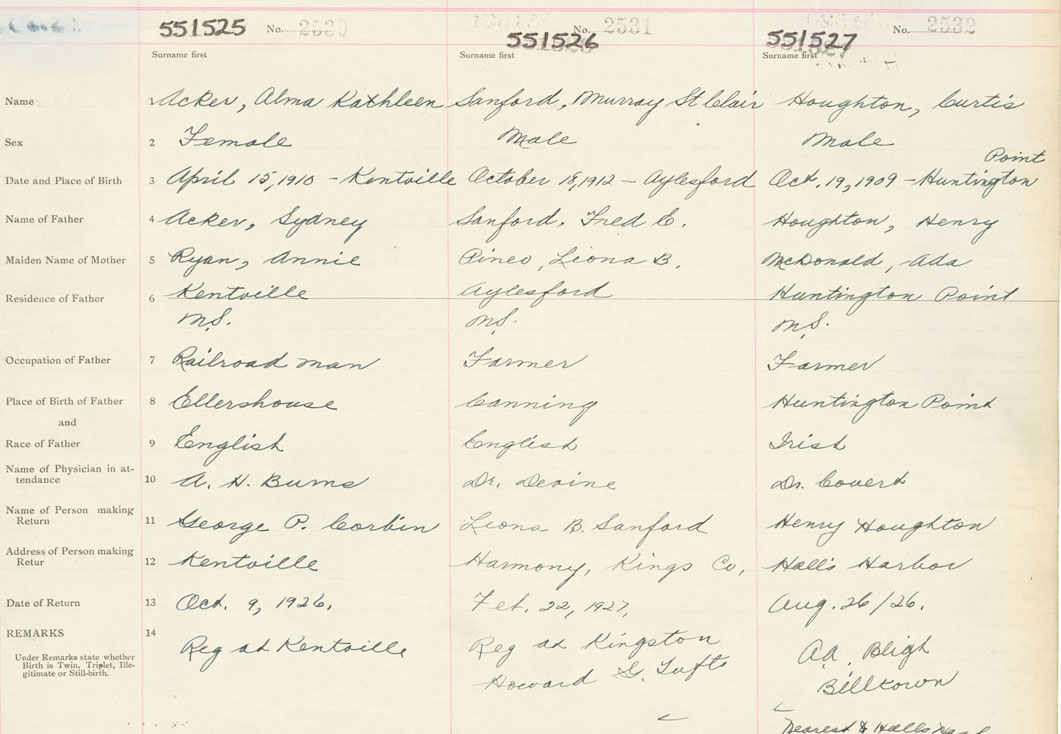 551525 No. 2530 551526 No. 2531 551527 No. 2532
Surname first Surname first Surname first
Name 1 Acker, Alma Kathleen Sanford, Murray St Clair Houghton, Curtis
Sex 2 Female Male Male
Point
Date and Place of Birth 3 April 15, 1910 - Kentville October 18, 1912 - Aylesford Oct. 19, 1909 - Huntington
Name of Father 4 Acker, Sydney Sanford, Fred E. Houghton, Henry
Maiden Name of Mother 5 Ryan, Annie Pineo, Leona B. McDonald, Ada
Residence of Father 6 Kentville Aylesford Huntington Point
N.S. N.S. N.S.
Occupation of Father 7 Railroad man Farmer Farmer
Place of Birth of Father 8 Ellershouse Canning Huntington Point
and
Race of Father 9 English English Irish
Name of Physician in at-
tendance 10 A. H. Burns Dr. Devine Dr. Covert
Name of Person making
Return 11 George P. Corbin Leona B. Sanford Henry Houghton
Address of Person making
Retur 12 Kentville Harmony, Kings Co, Hall's Harbor
Date of Return 13 Oct. 9, 1926. Feb. 22, 1927, Aug. 26/26.
REMARKS 14
Under Remarks state whether
Birth is Twin, Triplet, Ille-
gitimate or Still-birth.
Reg at Kentville Reg at Kingston A.A. Bligh
Howard G. Tufts Billtown
Nearest to Halls